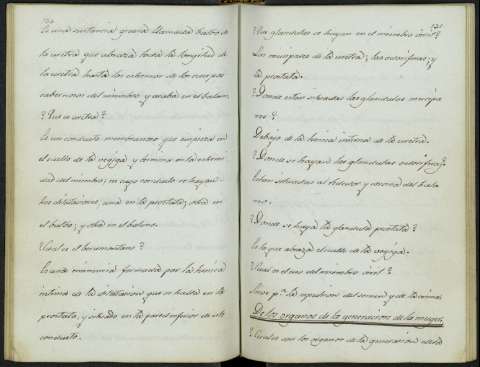 130
Es una sustancia gruesa llamada bulbo de
la uretra que abraza toda la longitud de
la uretra hasta los extremos de los cuerpos
cabernosos del miembro y acaba en el balano.
? Que es uretra ?
Es un conducto membranoso que empieza en
el cuello de la vegiga y termina en la extremi
dad del miembro; en cuyo conducto se hayan
tres dilataciones, una en la prostata; otra en
el bulbo; y otra en el balano.
? Cual es el
Es una eminencia formada por la tunica
interna de la dilatacion que se halla en la
prostata, y situado en la parte inferior de este
conducto.
131
? Que glandulas se hayan en el miembro viril ?
Las muciparas de la uretra; las odoriferas; y
la prostata.
? Donde estan situadas las glandulas mucipa
ras ?
Debajo de la tunica interna de la uretra.
? Donde se hayan las glandulas odoriferas ?
Estan situadas al rededor y corona del bala
no.
? Donde se haya la glandula prostata ?
Es la que abraza el cuello de la vegiga.
? Cual es el uso del miembro viril ?
Sirve pª la espulsion del semen y de la orina.
De los organos de la generacion de la muger.
? Cuales son los organos de la generacion